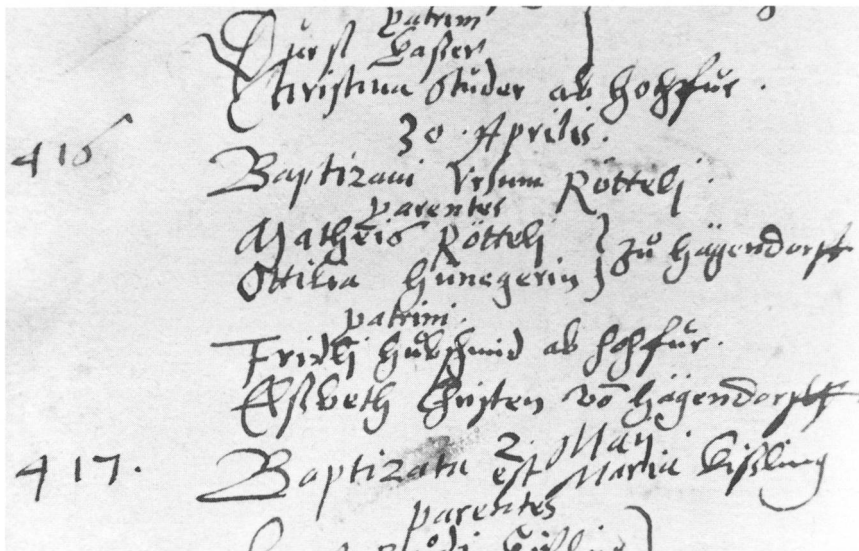 patrini
Durst Saher
Christina Studer ab hohfur.
30. Aprilis.
416 Baptizavi Ursum Röttelj.
parentes
Matheis Röttelj } Zů Hägendorff
Ottilia Hünegerin
patrini.
Fridlj Hůbschmid ab hohfůr.
Elsbeth Christen vō Hägendorff
2. Maij
417. Baptizata est Maria Kißling
parentes